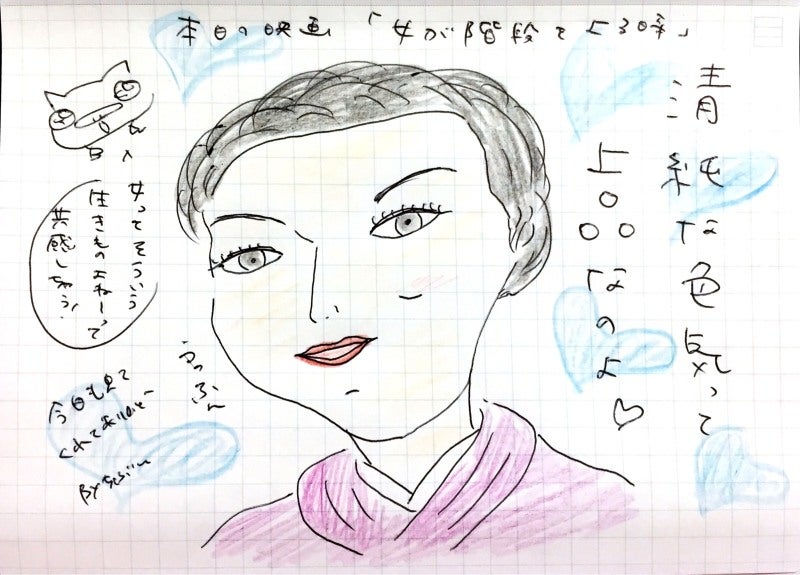 本日の映画「女が階段を上る時」
清純な色気って
上品なのよ♡
女ってそういう
生きものよねーって
共感しちゃう!
うっふん
今日も見て
くれてありがとー
BY